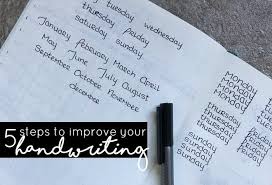 tuesday wednesday
thursday friday
saturday
sunday
January February March April
May June July August
September October November
december
Monday
Monday
Monday
thursday
thursday
thursday
sunday
sunday
sunday
5 steps to improve your
handwriting